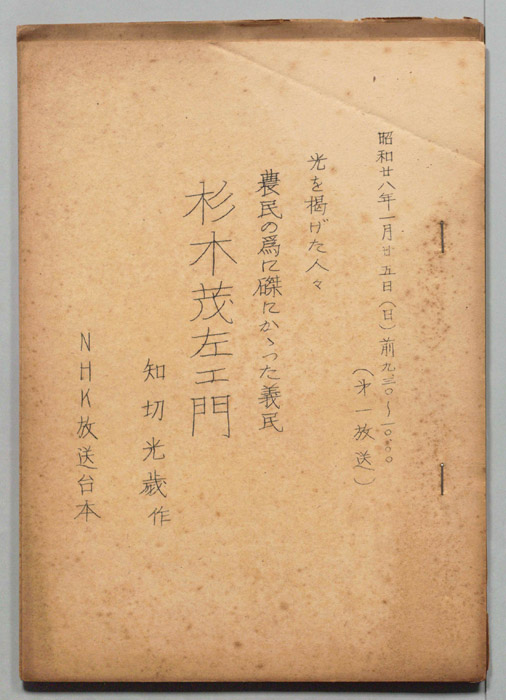 昭和廿八年一月廿五日(日)前九三〇〜一〇.〇〇
(才一放送)
光を掲げた人々
農民の爲に磔にかゝった義民
杉木茂左エ門
知切光歳作
NHK放送台本